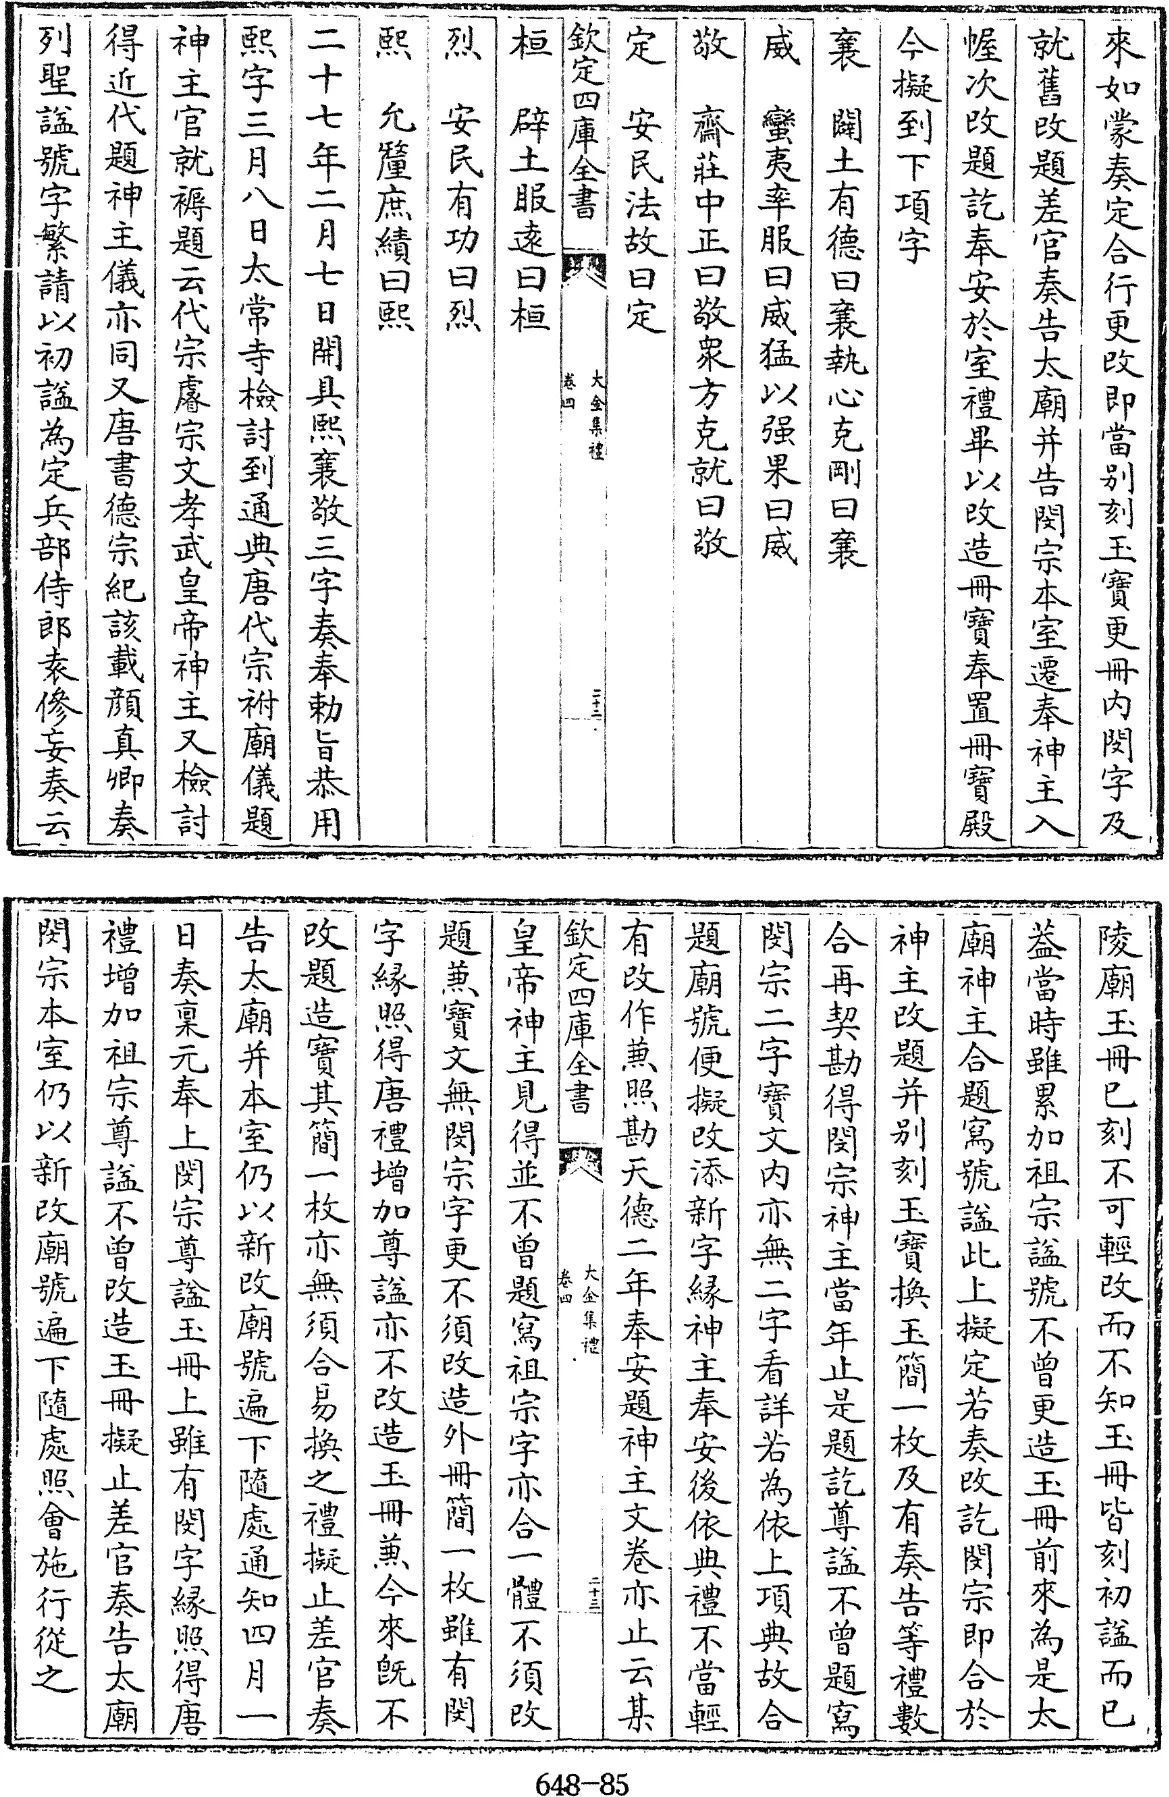 來如蒙奏定合行更改即當别刻玉寶更冊内閔字及
就舊改題差官奏告太廟并告閔宗本室遷奉神主入
幄次改題訖奉安於室禮畢以改造冊寶奉置冊寶殿
今擬到下項字
襄　闢土有德曰襄執心克剛曰襄
威　蠻夷率服曰威猛以强果曰威
敬　齋莊中正曰敬衆方克就曰敬
定　安民法故曰定
欽定四庫全書
大金集禮
卷四
二十二
桓　辟土服逺曰桓
烈　安民有功曰烈
熙　允釐庶績曰熙
二十七年二月七日開具熙襄敬三字奏奉勅旨恭用
熙字三月八日太常寺檢討到通典唐代宗祔廟儀題
神主官就褥題云代宗睿宗文孝武皇帝神主又檢討
得近代題神主儀亦同又唐書德宗紀該載顔真卿奏
列聖諡號字繁請以初諡為定兵部侍郎袁傪妄奏云
陵廟玉冊已刻不可輕改而不知玉冊皆刻初諡而已
葢當時雖累加祖宗諡號不曾更造玉冊前來為是太
廟神主合題寫號諡此上擬定若奏改訖閔宗即合於
神主改題并别刻玉寶換玉簡一枚及有奏告等禮數
合再契勘得閔宗神主當年止是題訖尊諡不曾題寫
閔宗二字寶文内亦無二字看詳若為依上項典故合
題廟號便擬改添新字縁神主奉安後依典禮不當輕
有改作兼照勘天德二年奉安題神主文卷亦止云某
欽定四庫全書
大金集禮
卷四
二十三
皇帝神主見得並不曾題寫祖宗字亦合一體不須改
題兼寶文無閔宗字更不須改造外冊簡一枚雖有閔
字縁照得唐禮增加尊諡亦不改造玉冊兼今來旣不
改題造寶其簡一枚亦無須合易換之禮擬止差官奏
告太廟并本室仍以新改廟號遍下隨處通知四月一
日奏稟元奉上閔宗尊諡玉冊上雖有閔字縁照得唐
禮增加祖宗尊諡不曾改造玉冊擬止差官奏告太廟
閔宗本室仍以新改廟號遍下隨處照會施行從之
648-85